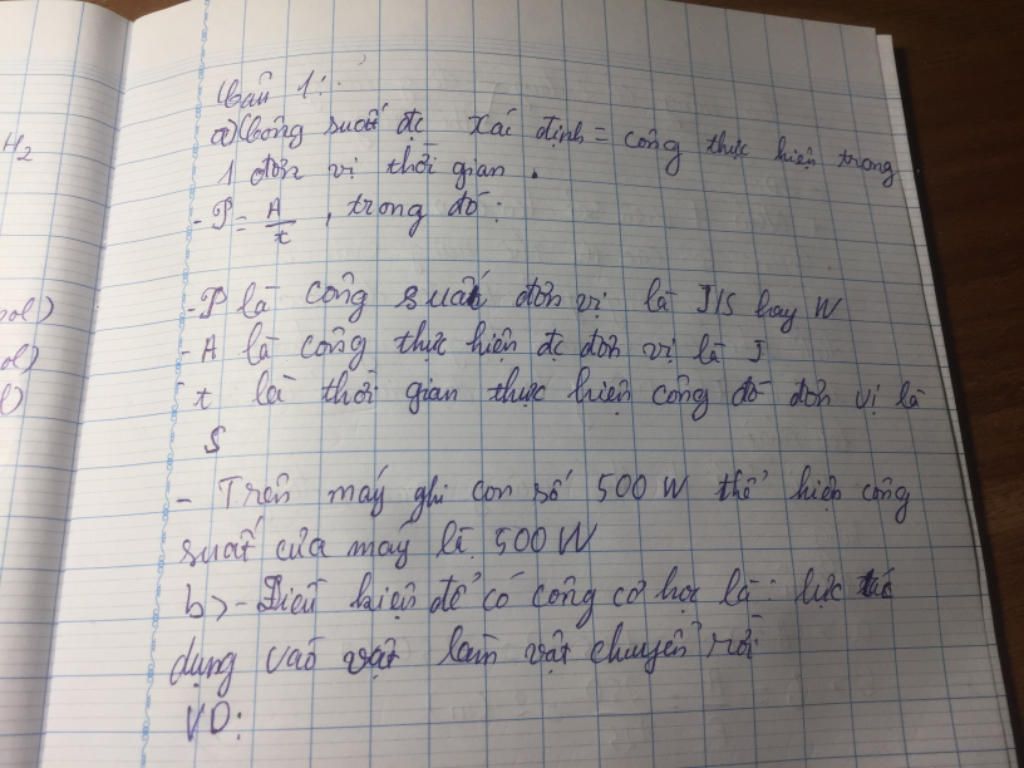 H2
ool)
ol)
l)
Câu 1:
a) Công suất đc xác định = công thực hiện trong
1 đơn vị thời gian.
- P = A/t, trong đó:
- P là công suất đơn vị là J/S hay W
- A là công thực hiện đc đơn vị là J
t là thời gian thực hiện công đó đơn vị là
S
- Trên máy ghi con số 500 W thể hiện công
suất của máy là 500W
b) - Điều kiện để có công cơ học là: lực tác
dụng vào vật làm vật chuyển rời
VD: